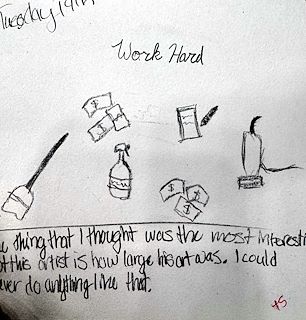 Tuesday 19th
Work Hard
$
$
$
$
$
$
e thing that I thought was the most interesti
of this artist is how large his art was. I could
ever do anything like that.
+5